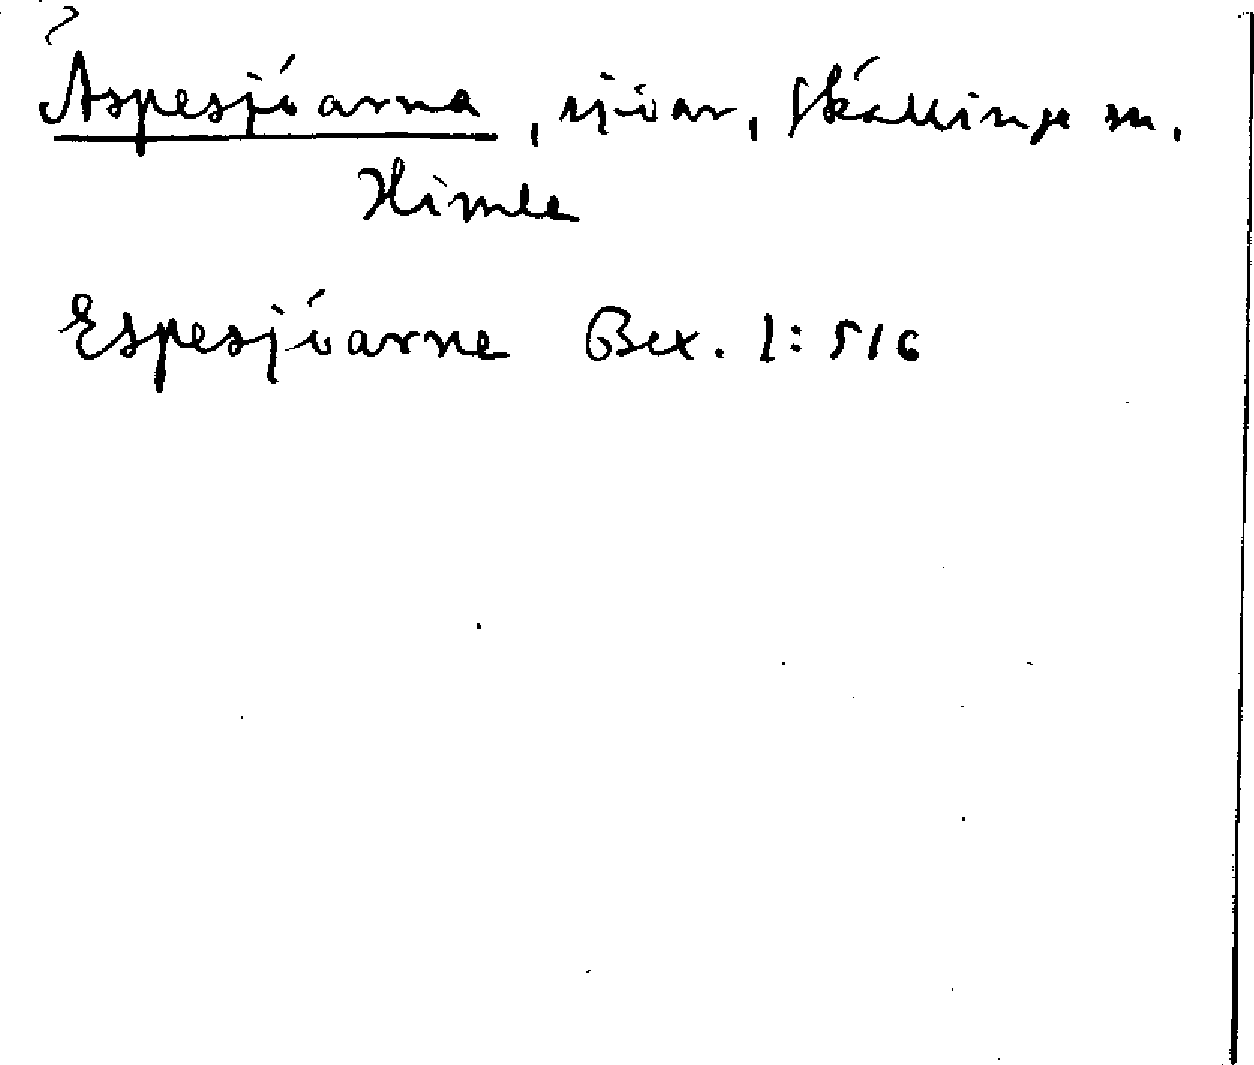 ?
Aspesjöarna, sjöar, Skällinge sn.
Himle
Espesjöarne Bex. 1:516